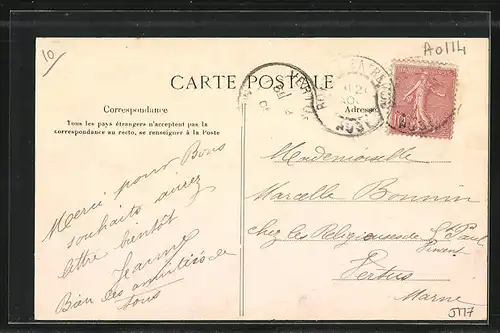 10
A0114
CARTE POSTALE
Correspondance
Tous les pays étrangers n'acceptent pas la
correspondance au recto, se renseigner à la Poste
Adresse
Merci pour Bons
souhaits aurez
lettre bientôt
Jeanne
Bien des amitiés de
tous
Mademoiselle
Marcelle Bonnin
chez les Religieuses de St Paul
Vertus
Marne